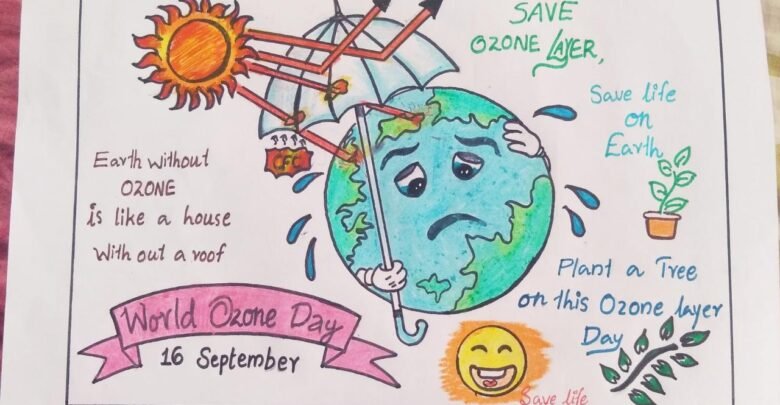 SAVE
OZONE LAYER,
Save life
on
Earth
CFC
Earth without
OZONE
is like a house
With out a roof
Plant a Tree
on this Ozone layer
Day
World Ozone Day
16 September
Save life